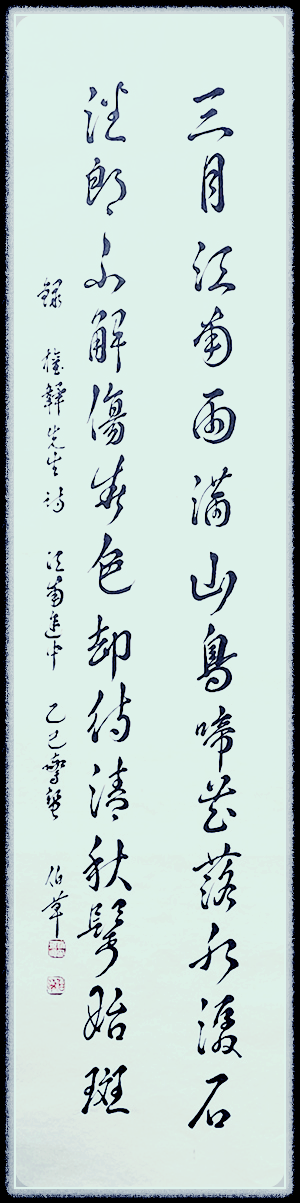 三月江南雨滿山鳥啼花落水石
潘郎不解傷春色却待清秋鬢始斑
錄 權韠先生詩 江南道中 乙巳驚蟄 伯